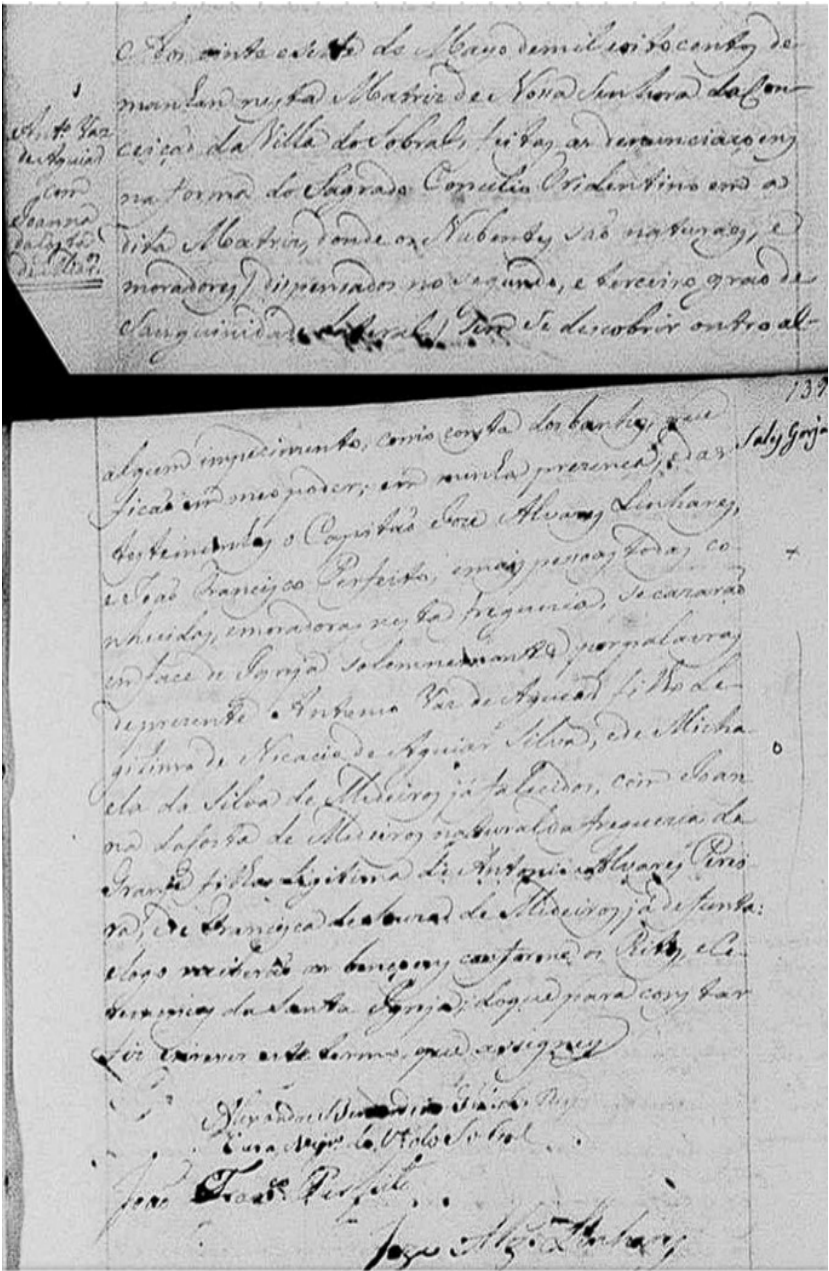 Antº Vaz
de Aguiar
com
Joanna
da Costa
de Medrº.
Aos vinte e sette de Mayo de mil e oito centos de
manhan nesta Matriz de Nossa Senhora da Con-
ceição da Villa do Sobral, feitas as denunciaçoens
na forma do Sagrado Concilio Tridentino em a
dita Matriz, donde os Nubentes são naturaes, e
moradores, dispensados no segundo, e terceiro grao de
Sanguinidade lateral, sem se descobrir outro al-
139
Sales Gurjaõ
algum impecimento, como consta dos banhos, que
ficaõ em meo poder, em minha prezença, e das
testeminhas o Capitaõ Joze Alvares Linhares,
e Joaõ Francisco Perfeito, e mais pessoas todas co-
nhecidas, e moradoras nesta freguezia, se cazaraõ
em face de Igreja solemnemante por palavras
de prezente Antonio Vaz de Aguiar filho Le-
gitimo de Nicacio de Aguiar Silva, e de Micha-
ela da Silva de Medeiros já falecidos, com Joan-
na da Costa de Medeiros natural da freguezia da
Granja filha legitima de Antonio Alvares Perei-
ra, e de Francisca de Souza de Medeiros já defunta:
e logo receberaõ as bençoens conforme os Ritos, e Ce-
remonias da Santa Igreja; do que para constar
fiz escrever este termo, que assigney
Alexandre Bernardino
Cura do Sobral
Joaõ Franco. Perfeito
Joze Alz. Linhares